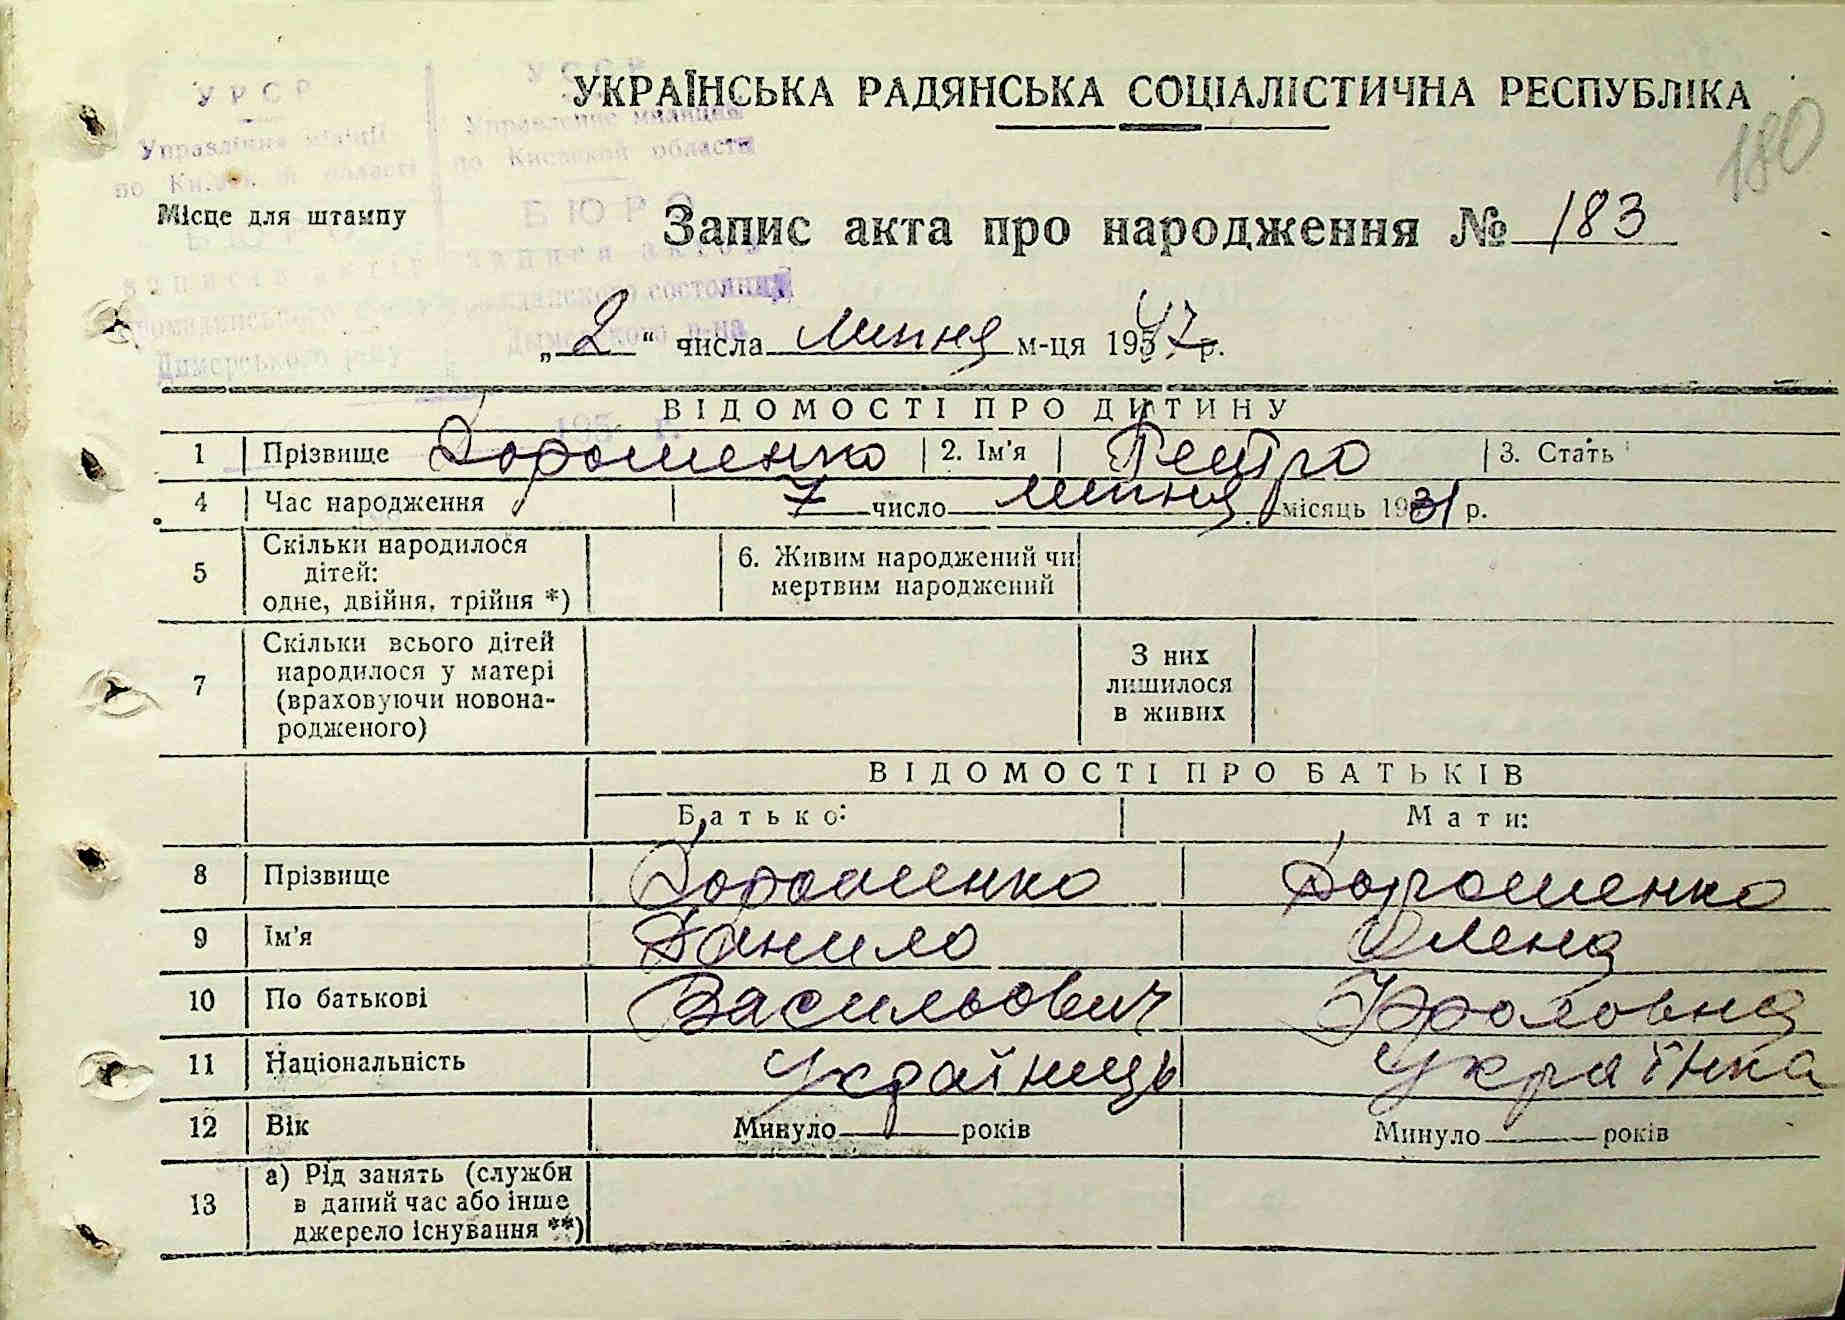 УРСР
УССР
УКРАЇНСЬКА РАДЯНСЬКА СОЦІАЛІСТИЧНА РЕСПУБЛІКА
180
Управління міліції
по області
Управление милиции
по Киевской области
БЮРО
Місце для штампу
Запис акта про народження № 183
записів актів
записи актов
гражданского состояния
Димерського р-ну
Дымерского р-на
„2“ числа липня м-ця 1947 р.
ВІДОМОСТІ ПРО ДИТИНУ
195 г.
1 Прізвище Дорошенко 2. Ім'я Петро 3. Стать
4 Час народження 7 число липня місяць 1931 р.
5 Скільки народилося дітей: одне, двійня, трійня *) 6. Живим народжений чи мертвим народжений
7 Скільки всього дітей народилося у матері (враховуючи новонародженого) З них лишилося в живих
ВІДОМОСТІ ПРО БАТЬКІВ
Батько: Мати:
8 Прізвище Дорошенко Дорошенко
9 Ім'я Данило Олена
10 По батькові Васильович Фроловна
11 Національність Українець Українка
12 Вік Минуло років Минуло років
13 а) Рід занять (служби в даний час або інше джерело існування **)